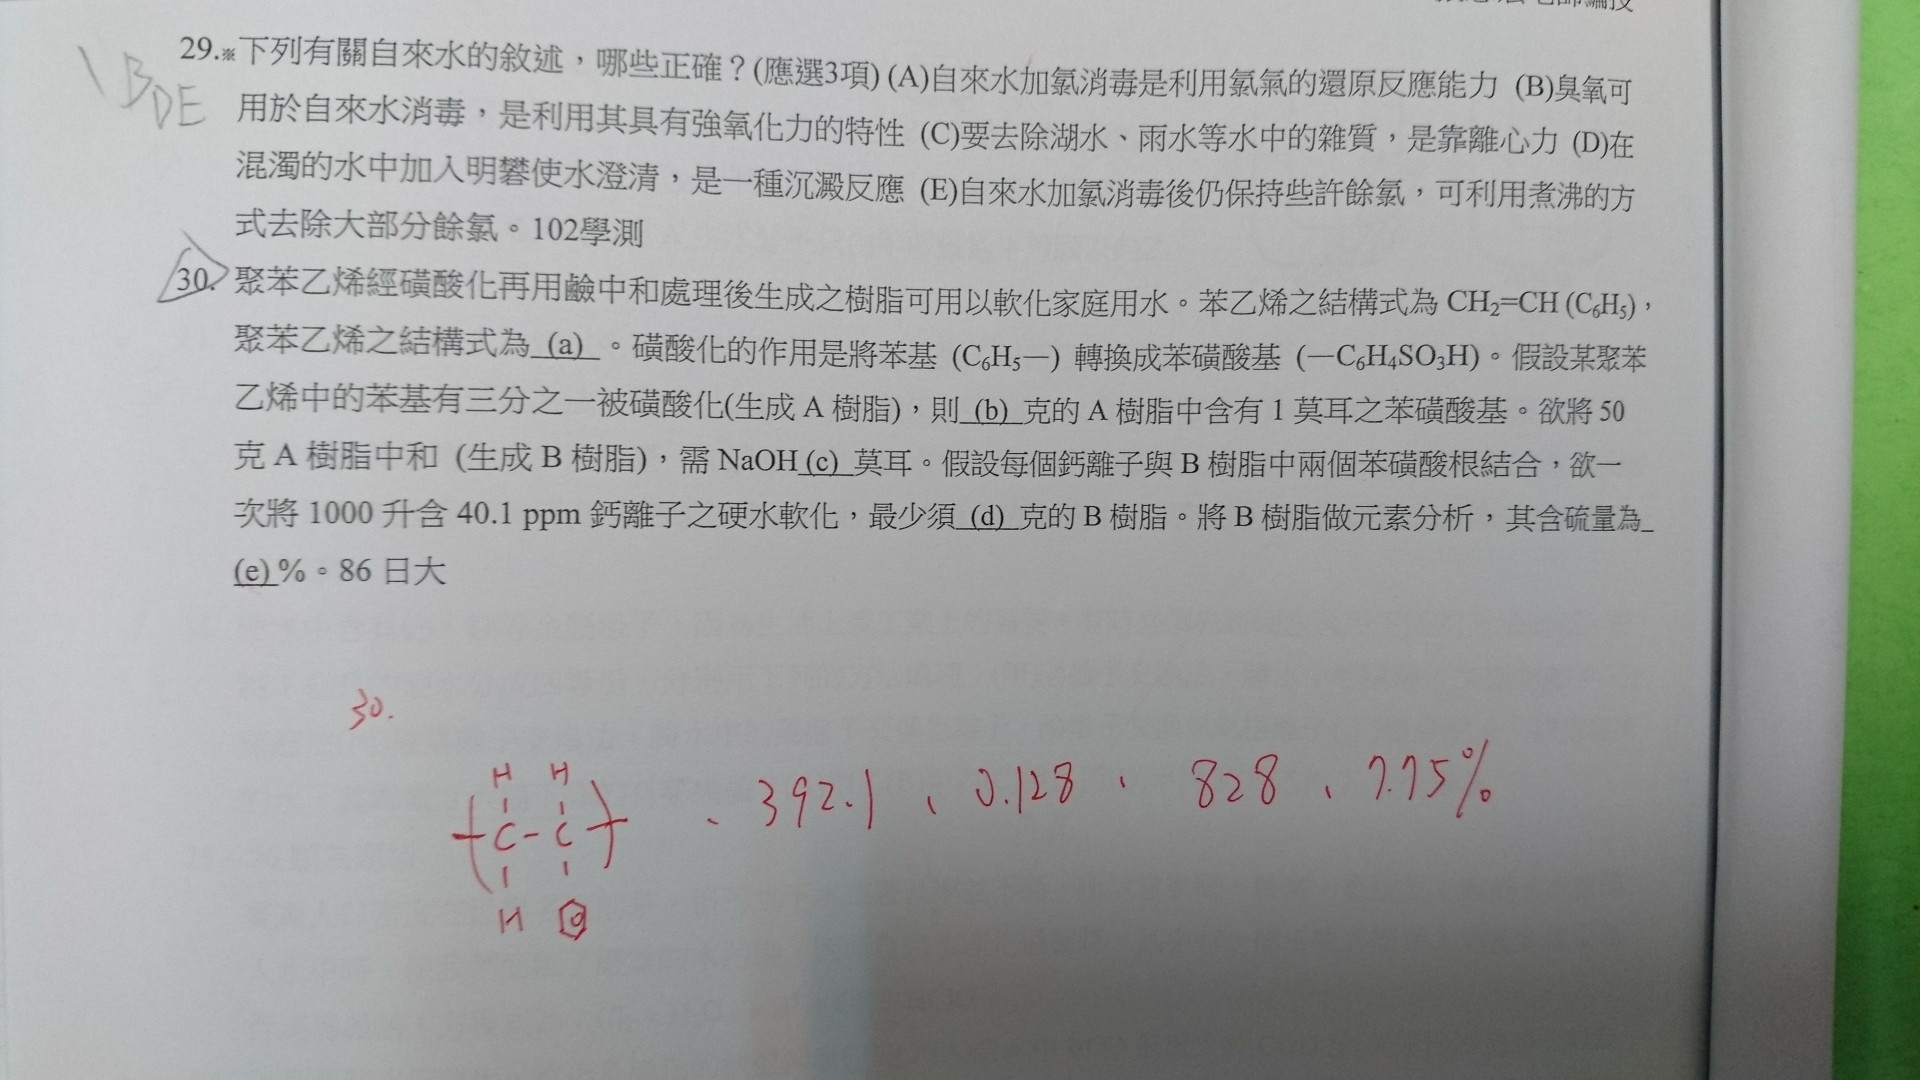 BDE
29.※下列有關自來水的敘述，哪些正確？(應選3項) (A)自來水加氯消毒是利用氯氣的還原反應能力 (B)臭氧可
用於自來水消毒，是利用其具有強氧化力的特性 (C)要去除湖水、雨水等水中的雜質，是靠離心力 (D)在
混濁的水中加入明礬使水澄清，是一種沉澱反應 (E)自來水加氯消毒後仍保持些許餘氯，可利用煮沸的方
式去除大部分餘氯。102學測
30. 聚苯乙烯經磺酸化再用鹼中和處理後生成之樹脂可用以軟化家庭用水。苯乙烯之結構式為 CH₂=CH (C₆H₅)，
聚苯乙烯之結構式為 (a) 。磺酸化的作用是將苯基 (C₆H₅—) 轉換成苯磺酸基 (—C₆H₄SO₃H)。假設某聚苯
乙烯中的苯基有三分之一被磺酸化(生成 A 樹脂)，則 (b) 克的 A 樹脂中含有 1 莫耳之苯磺酸基。欲將 50
克 A 樹脂中和 (生成 B 樹脂)，需 NaOH (c) 莫耳。假設每個鈣離子與 B 樹脂中兩個苯磺酸根結合，欲一
次將 1000 升含 40.1 ppm 鈣離子之硬水軟化，最少須 (d) 克的 B 樹脂。將 B 樹脂做元素分析，其含硫量為
(e) %。86 日大
30.
H H
C-C 、392.1、0.128、828、7.75%
H